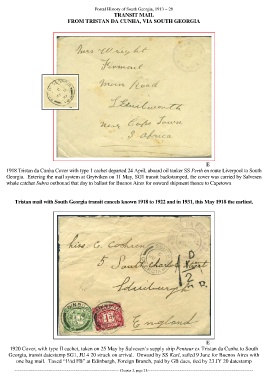 Postal History of South Georgia, 1913 – 20
TRANSIT MAIL
FROM TRISTAN DA CUNHA, VIA SOUTH GEORGIA
Mrs Wright
Main Road
near Cape Town
S Africa
E
1918 Tristan da Cunha Cover with type 1 cachet departed 24 April, aboard oil tanker SS Perth en route Liverpool to South
Georgia. Entering the mail system at Grytviken on 11 May, SG1 transit backstamped, the cover was carried by Salvesen
whale catcher outbound that day in ballast for Buenos Aires for onward shipment thence to Capetown.
Tristan mail with South Georgia transit cancels known 1918 to 1922 and in 1931, this May 1918 the earliest.
5 South Charlotte Street
Edinburgh
England
E
1920 Cover, with type II cachet, taken on 25 May by Salvesen's supply ship ex Tristan da Cunha to South
Georgia, transit datestamp SG1, JU 4 20 struck on arrival. Onward by SS sailed 9 June for Buenos Aires with
one bag mail. Taxed at Edinburgh, Foreign Branch, paid by GB dues, tied by 23 JY 20 datestamp.